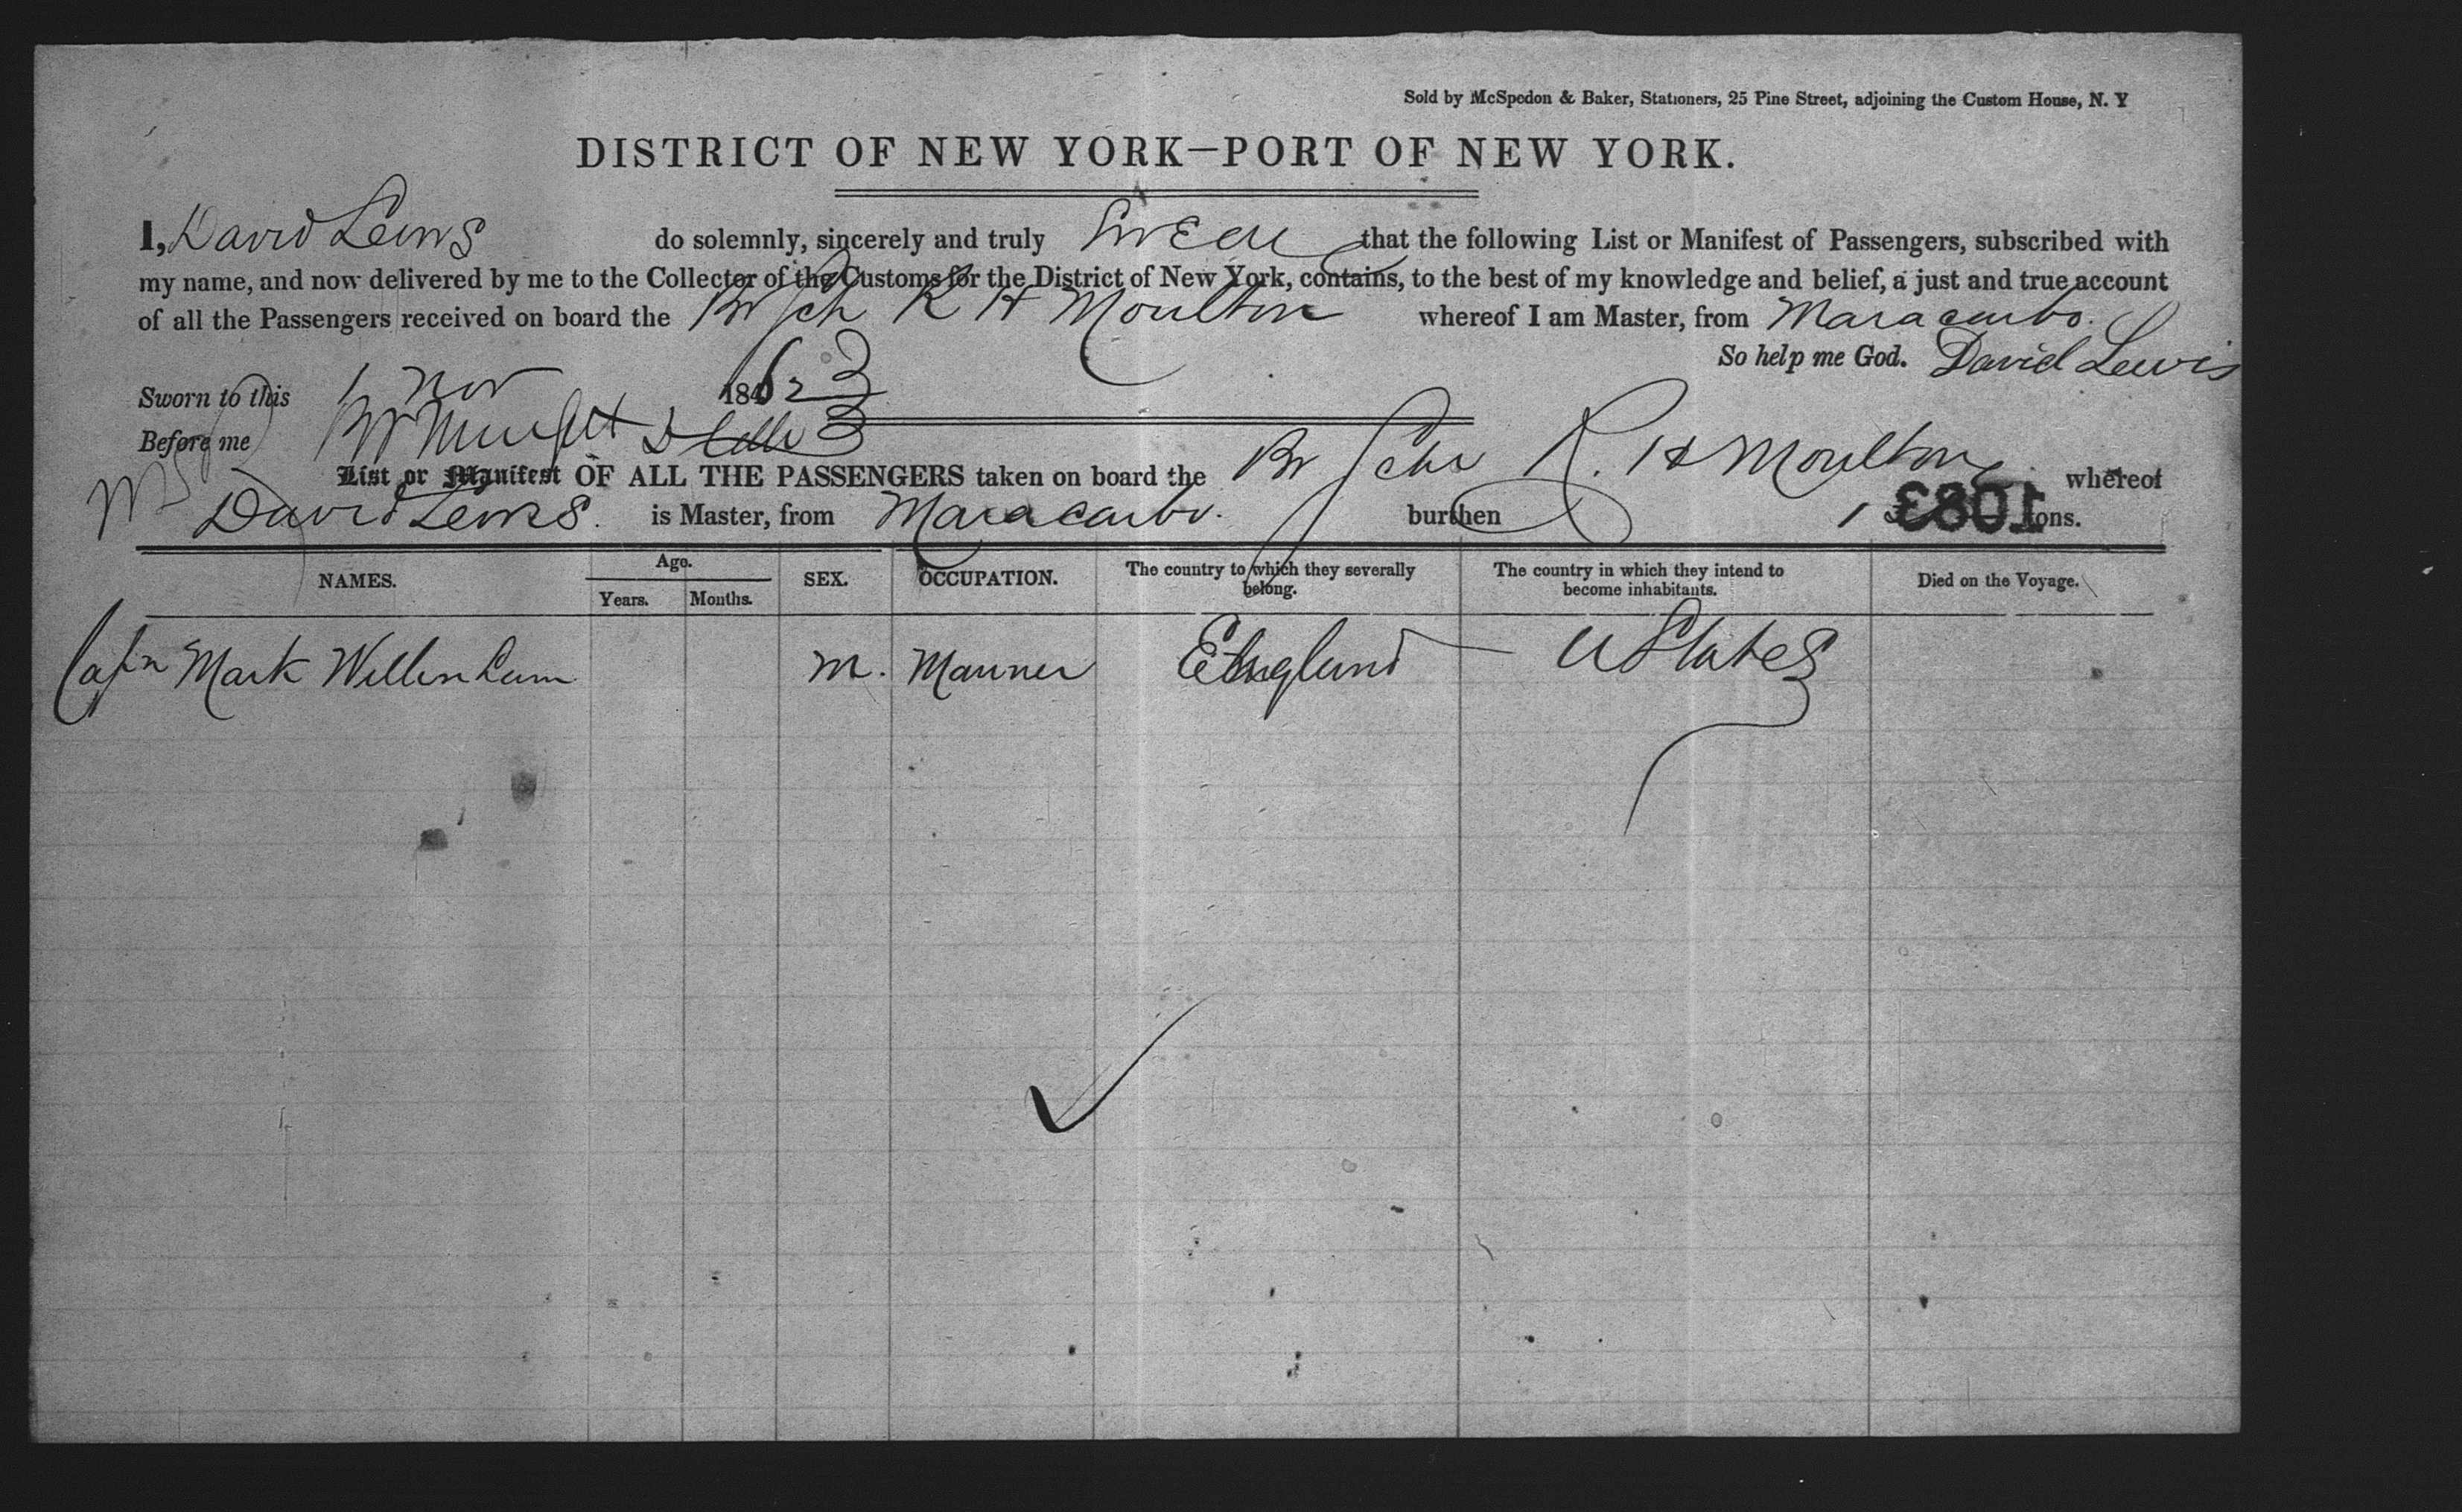 Sold by McSpedon & Baker, Stationers, 25 Pine Street, adjoining the Custom House, N. Y
DISTRICT OF NEW YORK—PORT OF NEW YORK.
I, David Lewis do solemnly, sincerely and truly Swear that the following List or Manifest of Passengers, subscribed with
my name, and now delivered by me to the Collector of the Customs for the District of New York, contains, to the best of my knowledge and belief, a just and true account
of all the Passengers received on board the Br Sch R H Moulton whereof I am Master, from Maracaibo.
So help me God. David Lewis
Sworn to this 1 Nov 1863
Before me
List or Manifest OF ALL THE PASSENGERS taken on board the Br Schr R. H Moulton whereof
David Lewis. is Master, from Maracaibo. burthen tons.
1083
NAMES. Age. SEX. OCCUPATION. The country to which they severally belong. The country in which they intend to become inhabitants. Died on the Voyage.
Years. Months.
Capn Mark m. Mariner England U States